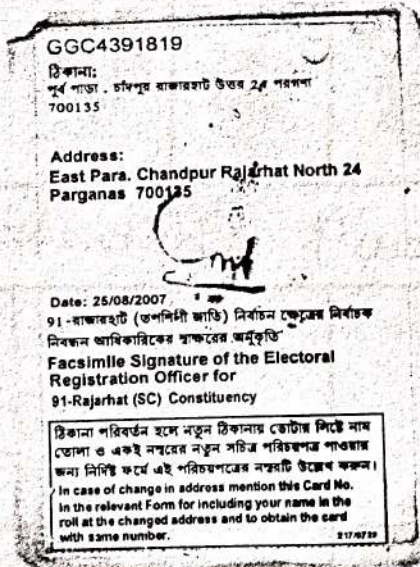 GGC4391819
ঠিকানা:
পূর্ব পাড়া . চাঁদপুর রাজারহাট উত্তর 24 পরগনা
700135
Address:
East Para. Chandpur Rajarhat North 24
Parganas 700135
Date: 25/08/2007
91 -রাজারহাট (তপশিলী জাতি) নির্বাচন ক্ষেত্রের নির্বাচক
নিবন্ধন আধিকারিকের স্বাক্ষরের অনুকৃতি
Facsimile Signature of the Electoral
Registration Officer for
91-Rajarhat (SC) Constituency
ঠিকানা পরিবর্তন হলে নতুন ঠিকানায় ভোটার লিষ্টে নাম
তোলা ও একই নম্বরের নতুন সচিত্র পরিচয়পত্র পাওয়ার
জন্য নির্দিষ্ট ফর্মে এই পরিচয়পত্রের নম্বরটি উল্লেখ করুন।
In case of change in address mention this Card No.
in the relevant Form for including your name in the
roll at the changed address and to obtain the card
with same number.